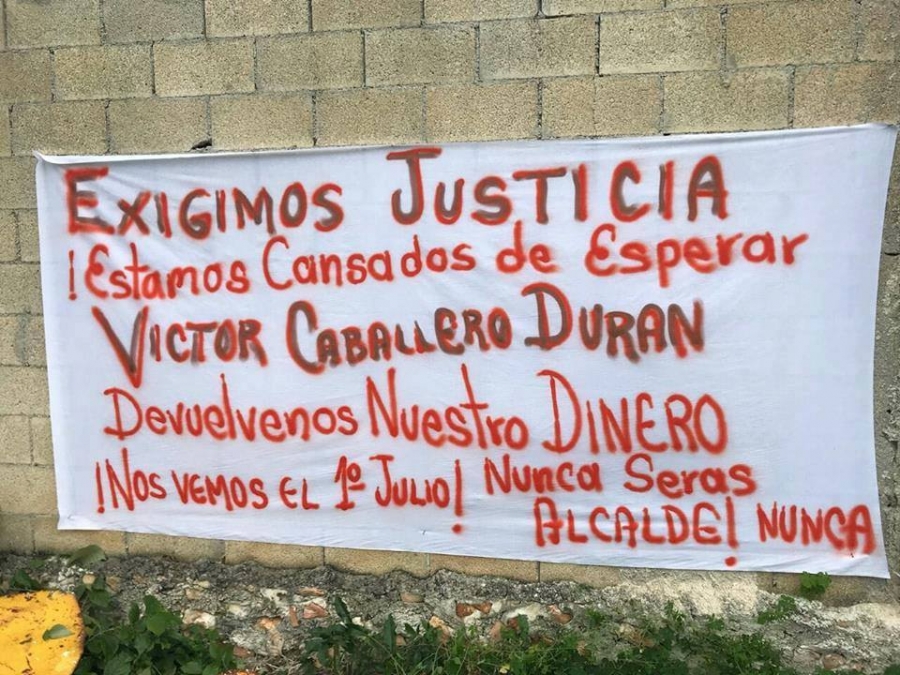 EXIGIMOS JUSTICIA
¡Estamos Cansados de Esperar
VICTOR CABALLERO DURAN
Devuelvenos Nuestro DINERO
¡NOS VEMOS EL 1º JULIO! Nunca Seras
ALCALDE! NUNCA